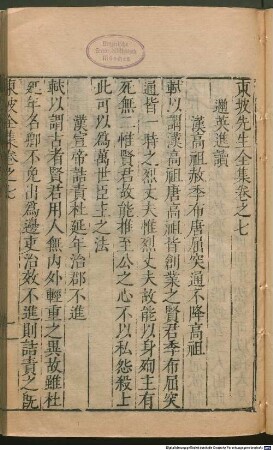 東坡先生全集卷之七
邇英進讀
漢高祖赦季布唐屈突通不降高祖
軾以謂漢高祖唐高祖皆創業之賢君季布屈突
通皆一時之烈丈夫惟烈丈夫故能以身殉主有
死無二惟賢君故能推至公之心不以私怨殺士
此可以為萬世臣主之法
漢宣帝詰責杜延年治郡不進
軾以謂古者賢君用人無內外輕重之異故雖杜
延年名卿不免出為邊吏治效不進則詰責之既
東坡全集卷之七